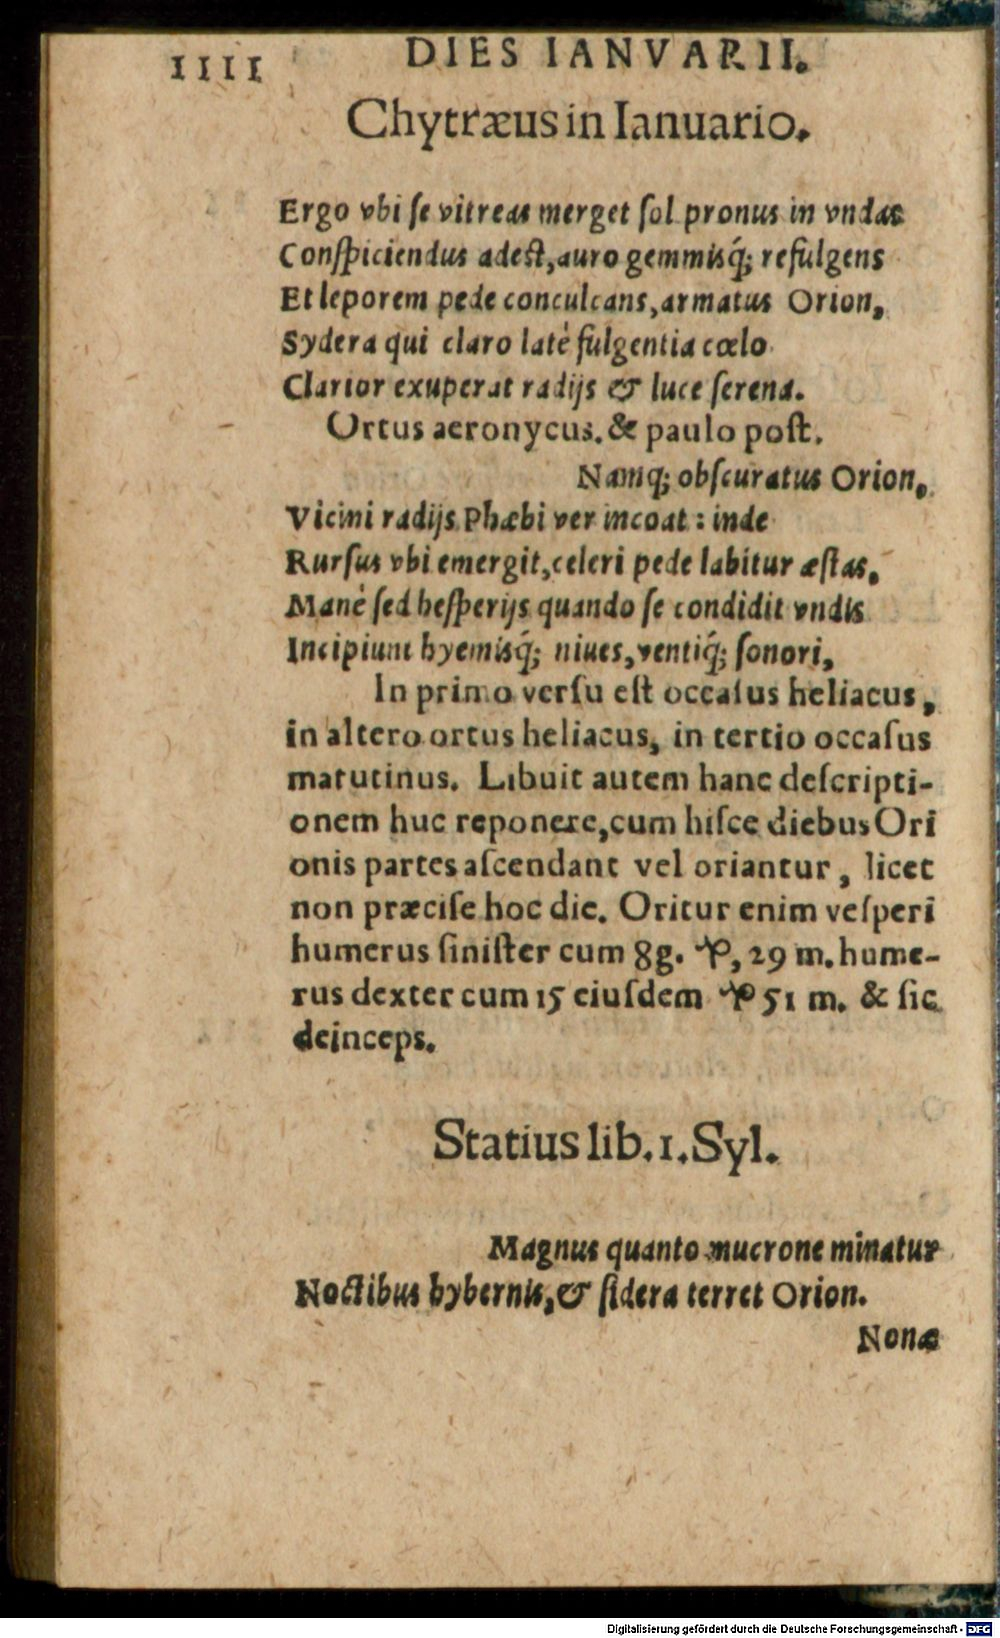 IIII DIES IANVARII.
Chytræus in Ianuario.
Ergo vbi ſe vitreas merget ſol pronus in vndas
Conſpiciendus adeſt, auro gemmisq́; refulgens
Et leporem pede conculcans, armatus Orion,
Sydera qui claro latè fulgentia cœlo
Clarior exuperat radijs & luce ſerena.
Ortus aeronycus. & paulo poſt.
Namq; obſcuratus Orion,
Vicini radijs Phæbi ver incoat: inde
Rurſus vbi emergit, celeri pede labitur æſtas,
Manè ſed heſperijs quando ſe condidit vndis
Incipiunt hyemisq́; niues, ventiq́; ſonori,
In primo verſu eſt occaſus heliacus,
in altero ortus heliacus, in tertio occaſus
matutinus. Libuit autem hanc deſcripti-
onem huc reponere, cum hiſce diebus Ori
onis partes aſcendant vel oriantur, licet
non præciſe hoc die. Oritur enim veſperi
humerus ſiniſter cum 8g. , 29 m. hume-
rus dexter cum 15 eiuſdem 51 m. & ſic
deinceps.
Statius lib. 1. Syl.
Magnus quanto mucrone minatur
Noctibus hybernis, & ſidera terret Orion.
Nonæ
Digitalisierung gefördert durch die Deutsche Forschungsgemeinschaft - DFG